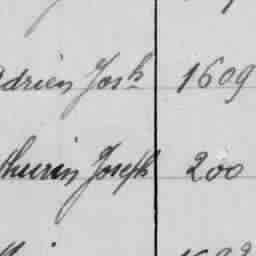 drien Josh 1609
thurin Joseph 200